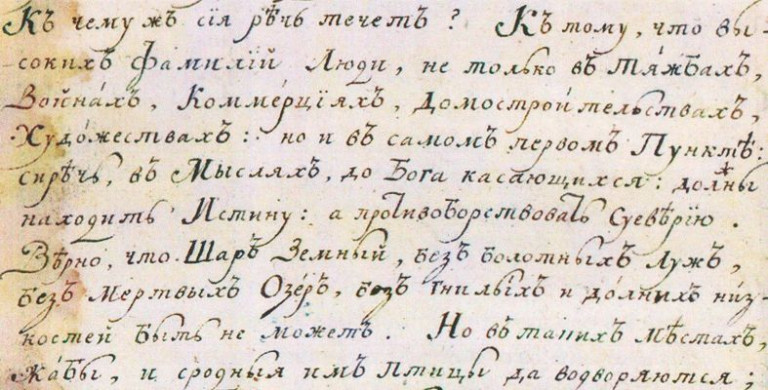 Къ чему жъ сія рѣчь течетъ? Къ тому, что вы-
сокихъ Фамилій Люди, не только въ тя́жбахъ,
Война́хъ, Комме́рціяхъ, Домострои́тельствахъ,
Худо́жествахъ: но и въ самомъ первомъ Пунктѣ:
сирѣчь, въ Мысляхъ, до Бога касающихся: должны
находить Истину: а противоборствовать Суевѣрію.
Вѣрно, что Шаръ Земный, безъ болотныхъ Лужъ,
безъ Мертвыхъ Озе́ръ, безъ гнилы́хъ и до́лнихъ ни́з-
костей быть не можетъ. Но въ такихъ мѣстахъ,
Жа́бы, и сродныя имъ птицы да водворяются;